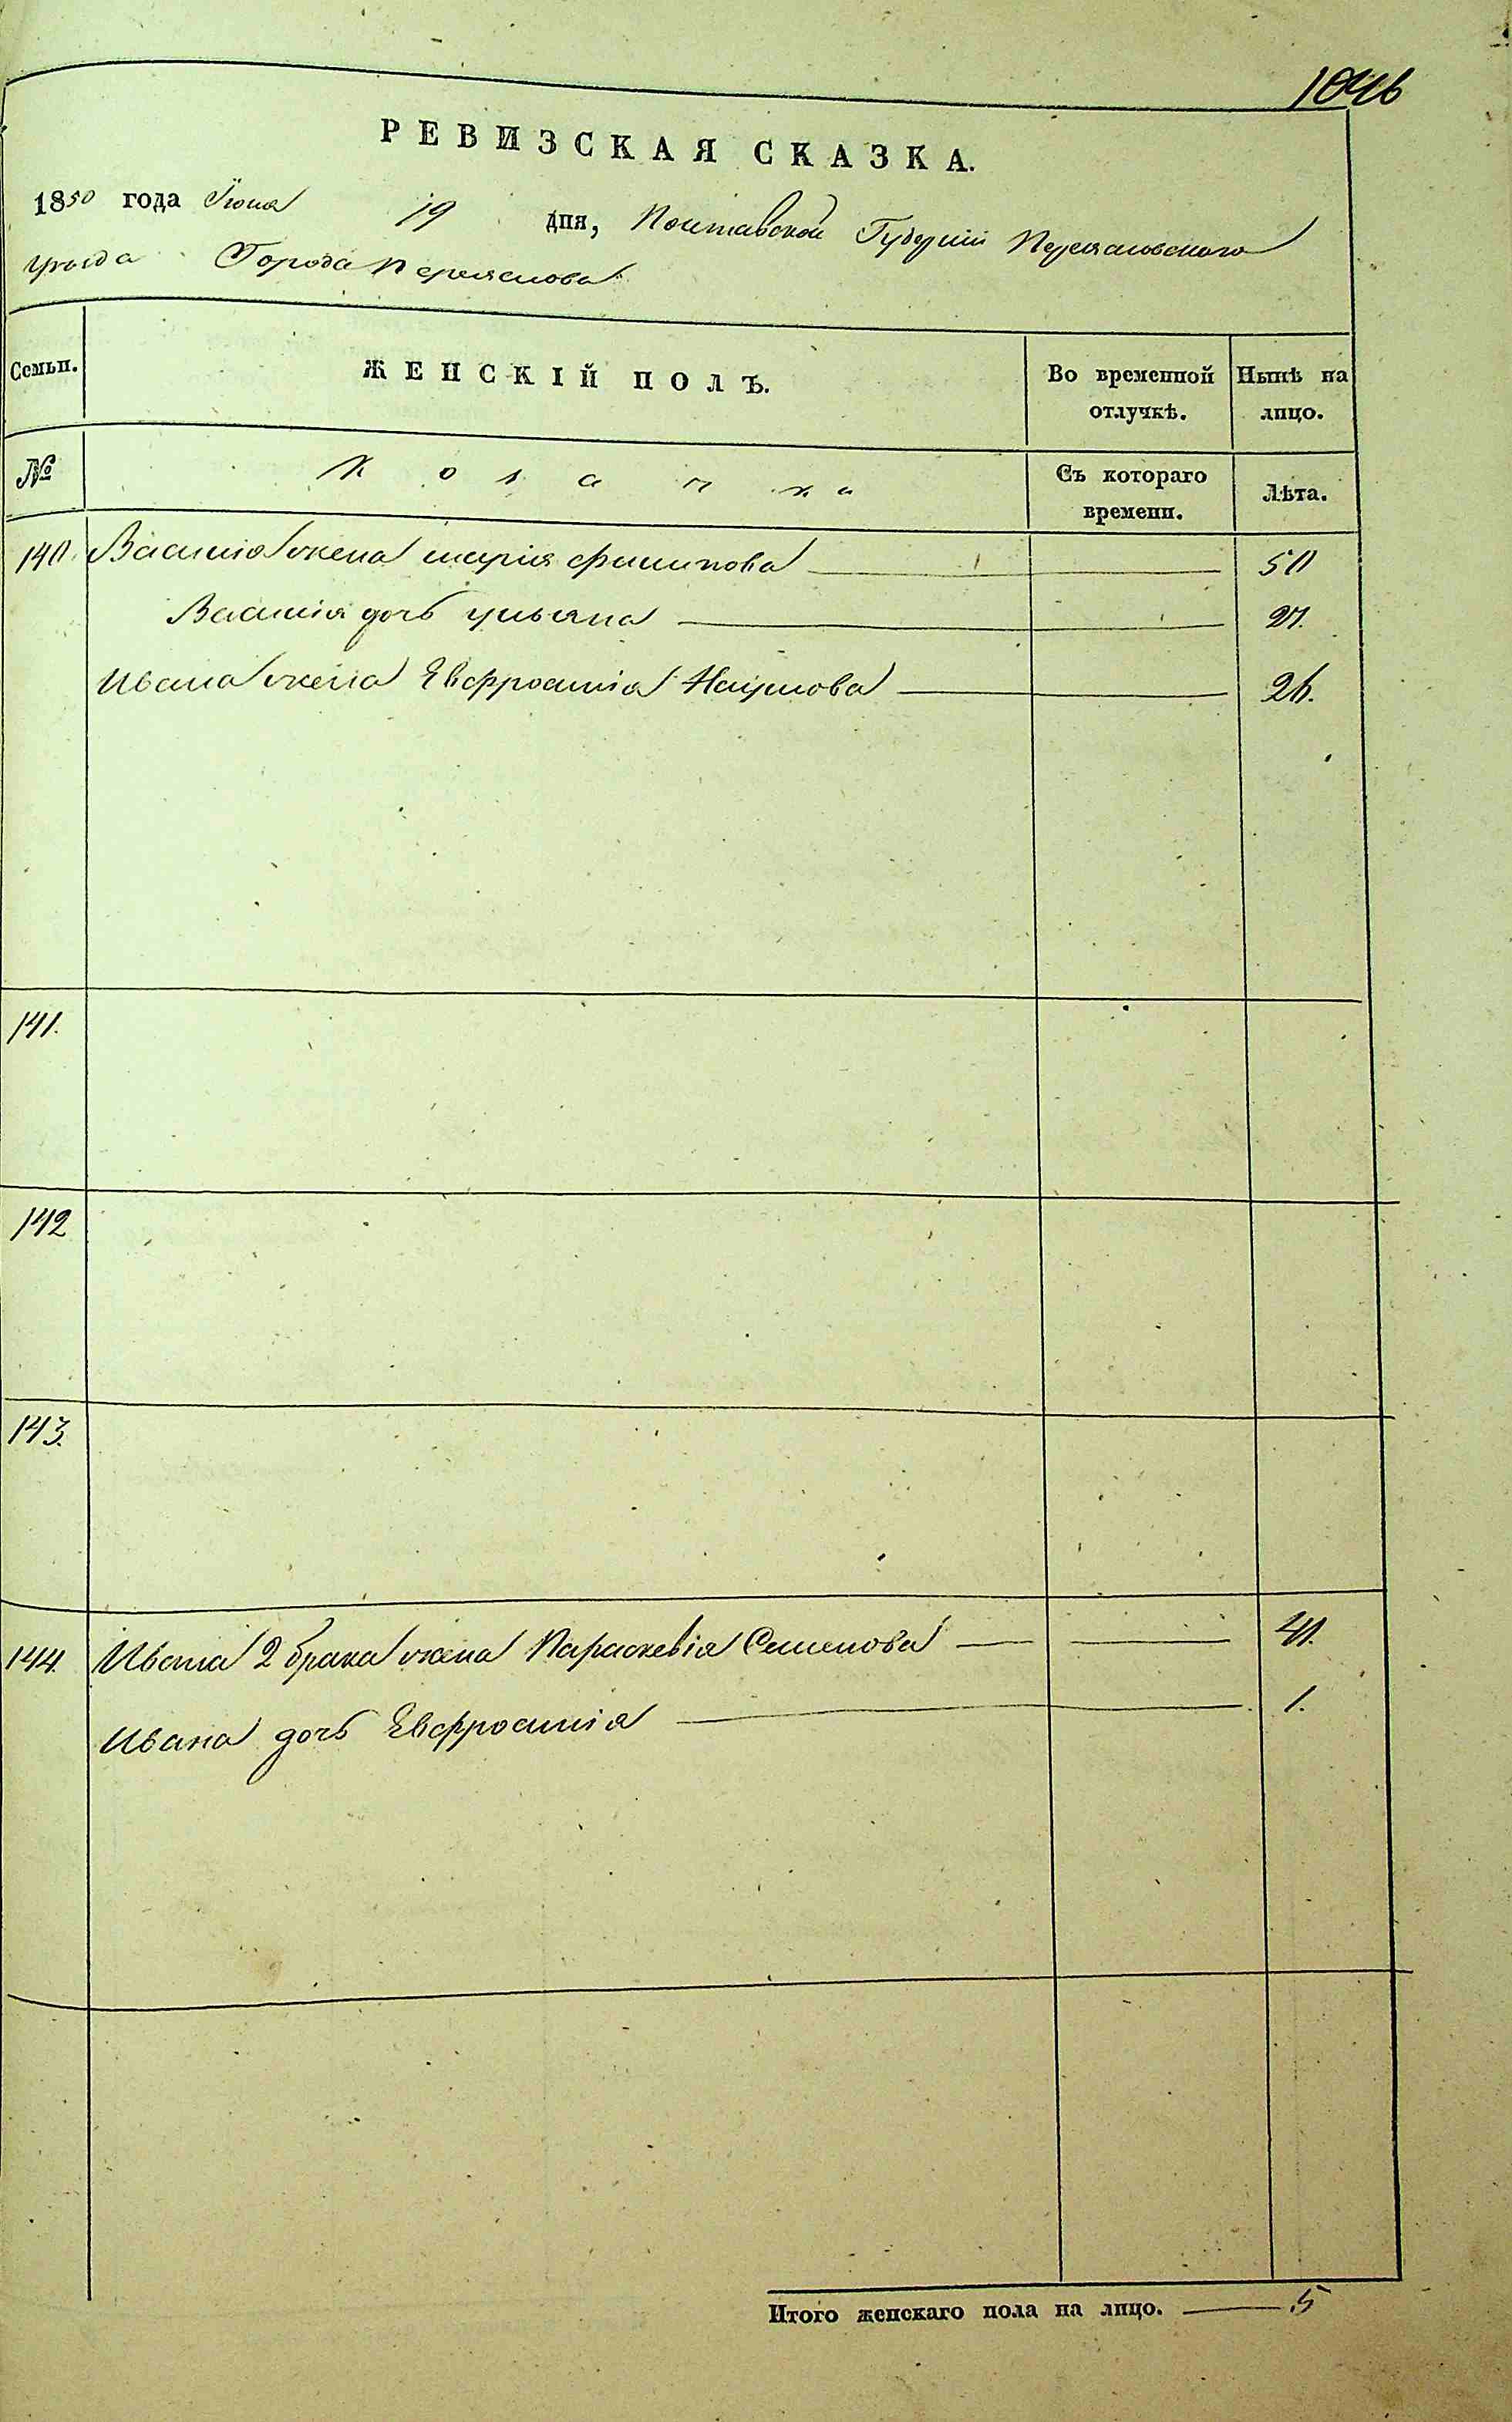 1046
РЕВИЗСКАЯ СКАЗКА.
1850 года Іюня 19 дня, Полтавской Губерніи Переяславского
уезда Города Переяслова
Семьи. ЖЕНСКІЙ ПОЛЪ. Во временной отлучкѣ. Нынѣ на лицо.
№ Козачка Съ котораго времени. Лѣта.
140. Василія жена Марія Филипова 50
Василія дочь Ульяна 27.
Ивана жена Евфросинія Наумова 26.
141.
142
143.
144. Ивана 2 брака жена Параскевія Семенова 41.
Ивана дочь Евфросинія 1.
Итого женскаго пола на лицо. 5